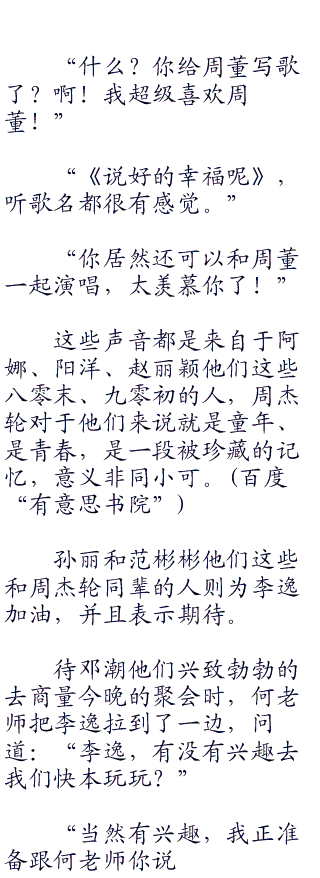 “什么？你给周董写歌
了？啊！我超级喜欢周
董！”
“《说好的幸福呢》，
听歌名都很有感觉。”
“你居然还可以和周董
一起演唱，太羡慕你了！”
这些声音都是来自于阿
娜、阳洋、赵丽颖他们这些
八零末、九零初的人，周杰
轮对于他们来说就是童年、
是青春，是一段被珍藏的记
忆，意义非同小可。(百度
“有意思书院”)
孙丽和范彬彬他们这些
和周杰轮同辈的人则为李逸
加油，并且表示期待。
待邓潮他们兴致勃勃的
去商量今晚的聚会时，何老
师把李逸拉到了一边，问
道：“李逸，有没有兴趣去
我们快本玩玩？”
“当然有兴趣，我正准
备跟何老师你说